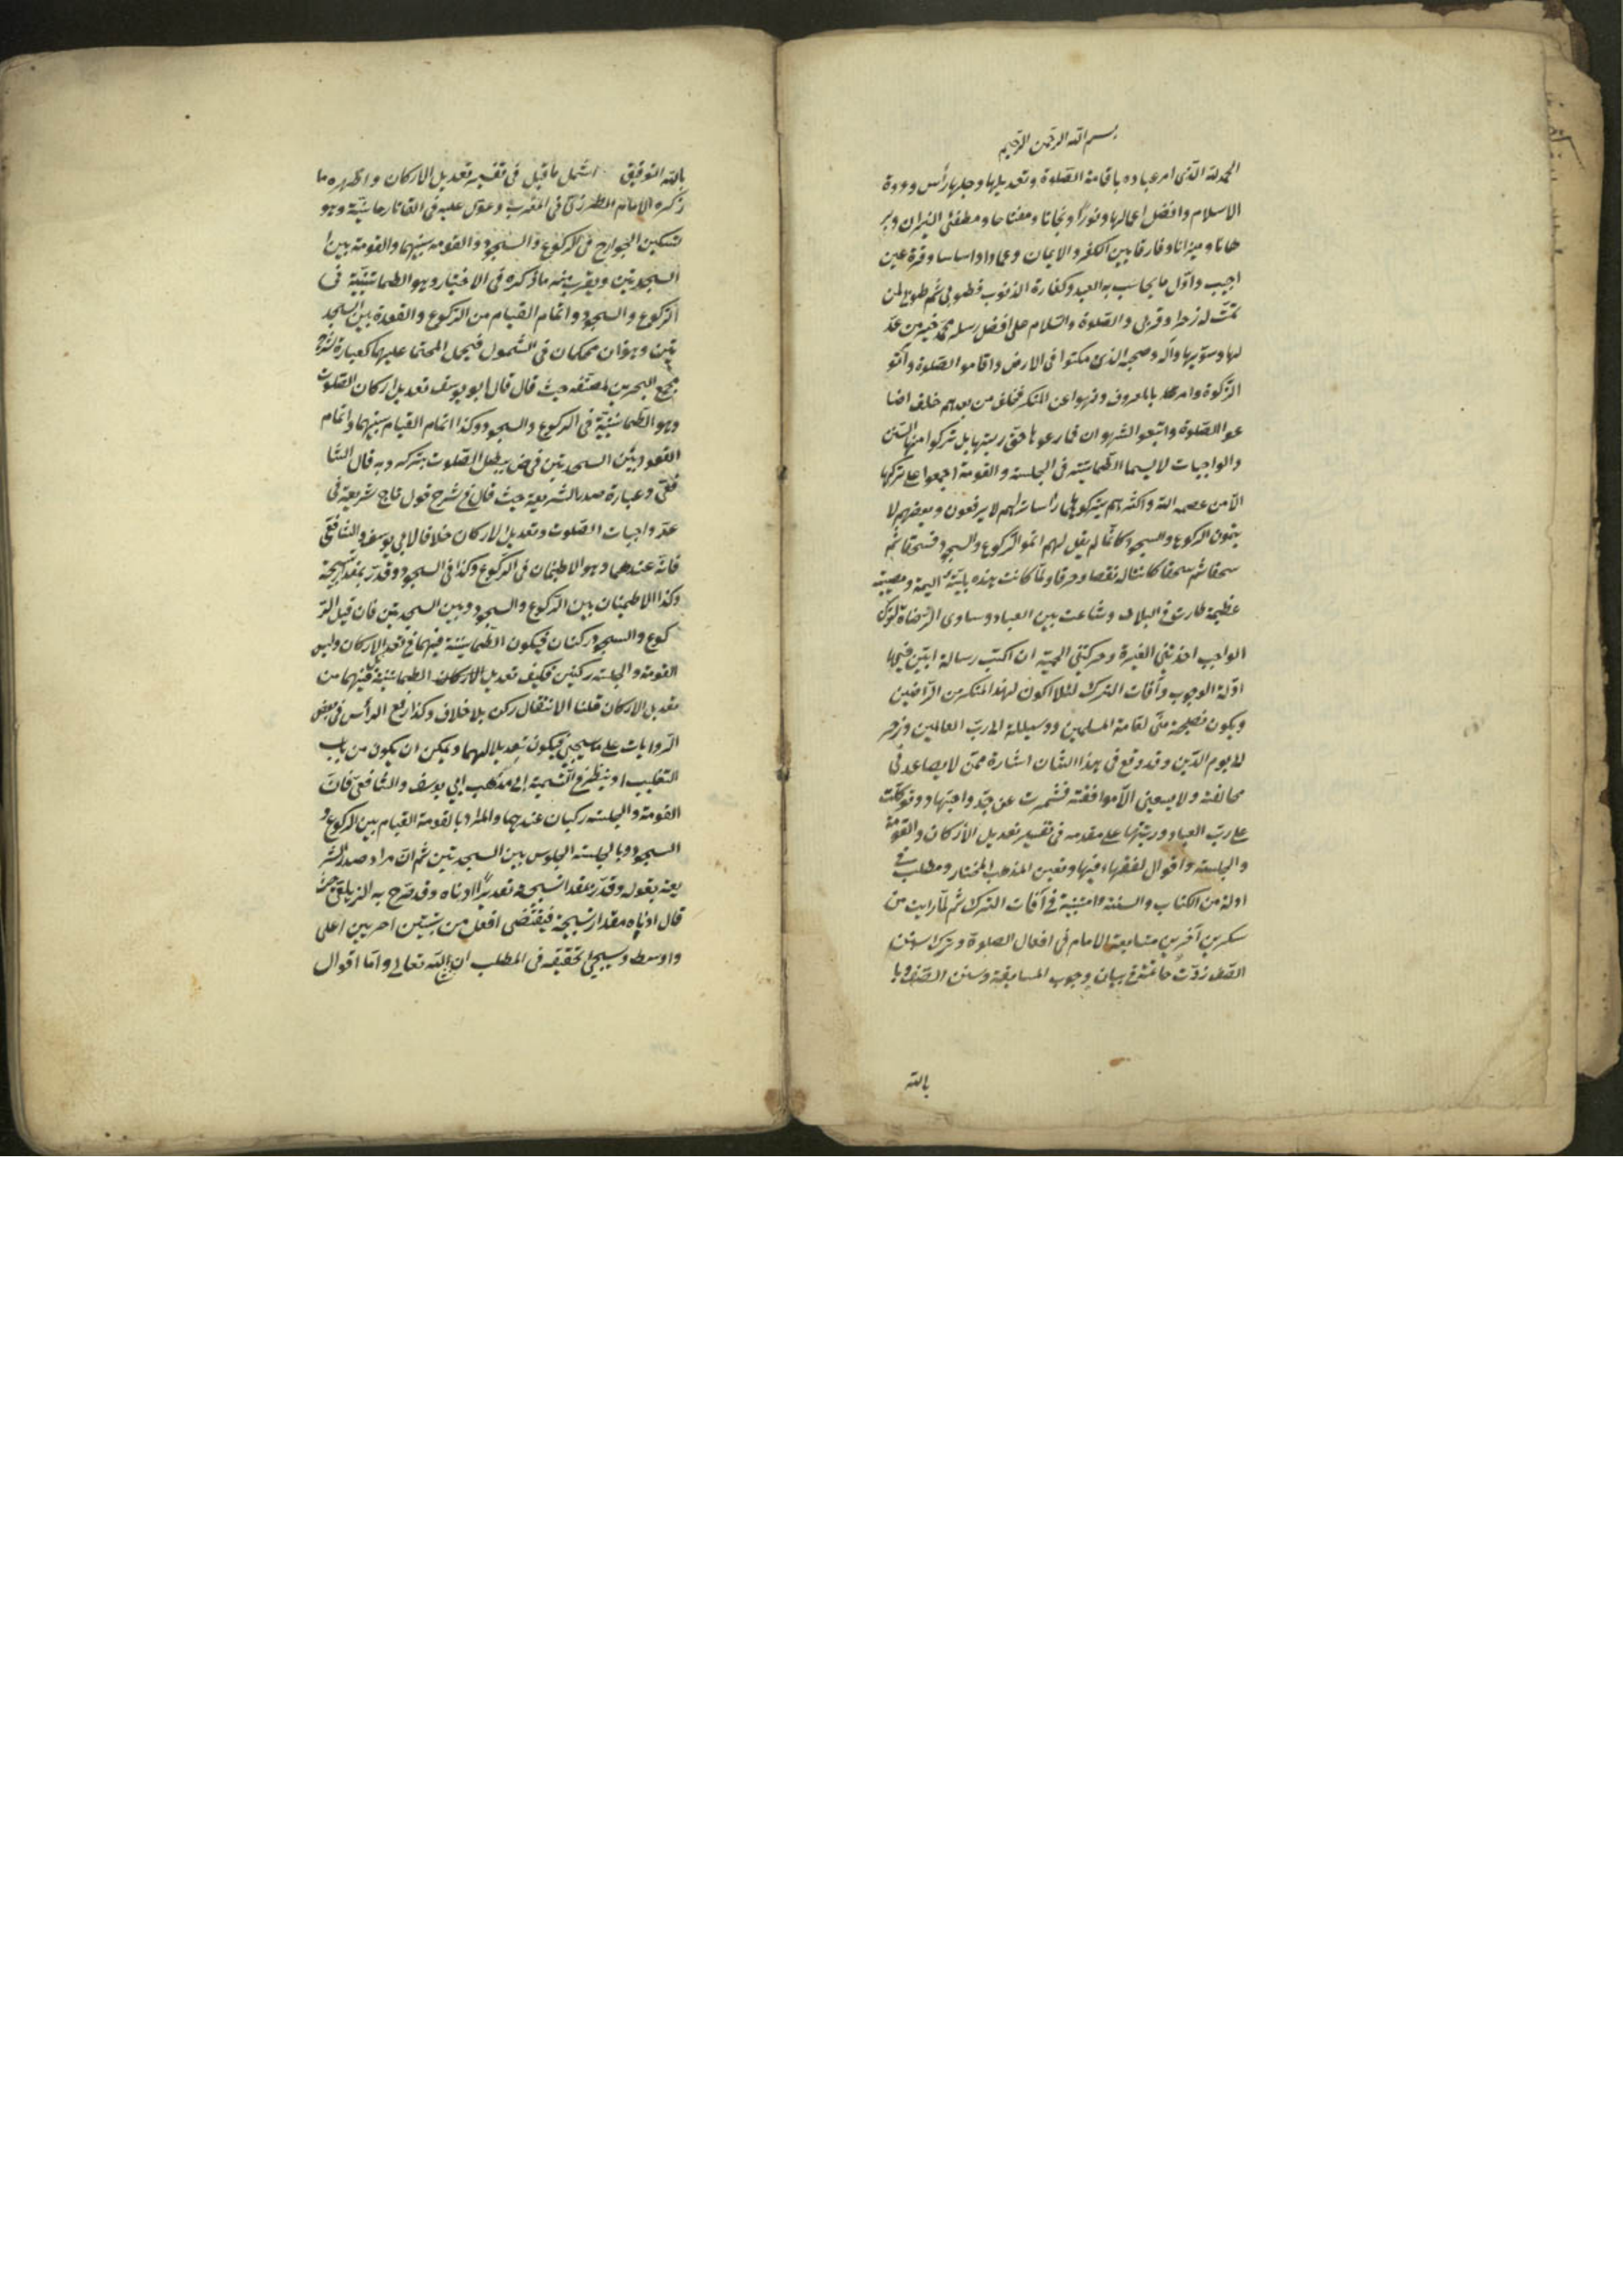 بسم الله الرحمن الرحيم
الحمد لله الذى امر عباده باقامة الصلوة وتعديلها وجعلها رأس وذروة
الاسلام وافضل اعمالها ونورا ونجاتا ومفتاحا ومطفئ النيران وبر
هانا وميزانا وفارقا بين الكفر والايمان وعمادا واساسا وقرة عين
اجيب واول ما يحاسب به العبد وكفارة الذنوب فطوبى ثم طوبى لمن
تمت له زحرا وقربى والصلوة والسلام على افضل رسله محمد خير من عد
لها وسويها وآله وصحبه الذى مكنوا فى الارض واقاموا الصلوة وآتو
الزكوة وامر بالمعروف ونهوا عن المنكر فخلف من بعدهم خلف اضا
عوا الصلوة واتبعوا الشهوات فما رعوها حق رعيتها بل تركوا منها السنن
والواجبات لا سيما الطمانينة فى الجلسة والقومة اجمعوا على تركها
الا من عصمه الله واكثرهم يتركوها راسا تراهم لا يرفعون وبعضهم لا
يتمون الركوع والسجود كانما لم يقل لهم اتموا الركوع والسجود فسحقا ثم
سحقا ثم سحقا كانتاله نقصا وحرقا ولما كانت هذه بلية اليمة ومصيبة
عظيمة طارت فى البلاد وشاعت بين العباد وساوى الرضاء بترك
الواجب اخذتنى الغيرة وحركتنى الحمية ان اكتب رسالة ابين فيها
ادلة الوجوب وآفات الترك لئلا اكون لهذا المنكر من الراضين
ويكون نصيحة منى لعامة المسلمين ووسيلة الى رب العالمين وذخر
ليوم الدين وقد وقع فى هذا الشان اشارة ممن لا يساعدنى
مخالفته ولا يسعنى الا موافقته فشمرت عن جد واجتهاد وتوكلت
على رب العباد ورتبتها على مقدمه فى تفسير تعديل الاركان والقومة
والجلسة واقوال الفقهاء فيها وتعيين المذهب المختار ومطلب فى
ادلة من الكتاب والسنة وامنية فى آفات الترك ثم لما رايت من
منكرين آخرين متابعة الامام فى افعال الصلوة وترك سنن
الصف زدت خاتمة فى بيان وجوب المتابعة وسنن الصف وبا
بالله
بالله التوفيق اشمل ما قيل فى تفسير تعديل الاركان واظهره ما
ذكره الامام المطرزى فى المغرب وعول عليه فى التاتارخانية وهو
تسكين الجوارح فى الركوع والسجود والقومة بينهما والقومة بين ا
السجدتين ويقرب منه ما ذكره فى الاختيار وهو الطمانينة فى
الركوع والسجود واتمام القيام من الركوع والقعدة بين السجد
تين وهذان محكمان فى الشمول فيحمل المحتمل عليهما كعبارة شرح
مجمع البحرين لمصنفه حيث قال قال ابو يوسف تعديل اركان الصلوة
وهو الطمانينة فى الركوع والسجود وكذا اتمام القيام بينهما واتمام
القعود بين السجدتين فرض يبطل الصلوة بتركه وبه قال الشا
فعى وعبارة صدر الشريعة حيث قال فى شرح قول تاج شريعة فى
عد واجبات الصلوة وتعديل الاركان خلافا لابى يوسف والشافعى
فانه عندهما وهو الاطمئنان فى الركوع وكذا فى السجود وقدر بمقدار تسبيحة
وكذا الاطمئنان بين الركوع والسجود وبين السجدتين فان قيل الر
كوع والسجود ركنان فيكون الطمانينة فيهما تعديل الاركان وليس
القومة والجلسة ركنين فكيف تعديل الاركان الطمانينة فيهما من
تعديل الاركان قلنا الانتقال ركن بلا خلاف وكذا رفع الرأس فى بعض
الروايات على ما سيجئ فيكون تعديلا لهما ويمكن ان يكون من باب
التغليب او ينظر فى التسمية الى مذهب ابى يوسف والشافعى فان
القومة والجلسة ركنان عندهما والمراد بالقومة القيام بين الركوع و
السجود وبالجلسة الجلوس بين السجدتين ثم ان مراد صدر الشر
يعة بقوله وقدر بمقدار تسبيحة تعديرا ادناه وقد صرح به الزيلعى حيث
قال ادناه مقدار تسبيحة فيقتضى افعل من شيئين اخريين اعلى
واوسط وسيجئ تحقيقه فى المطلب ان شاء الله تعالى واما اقوال